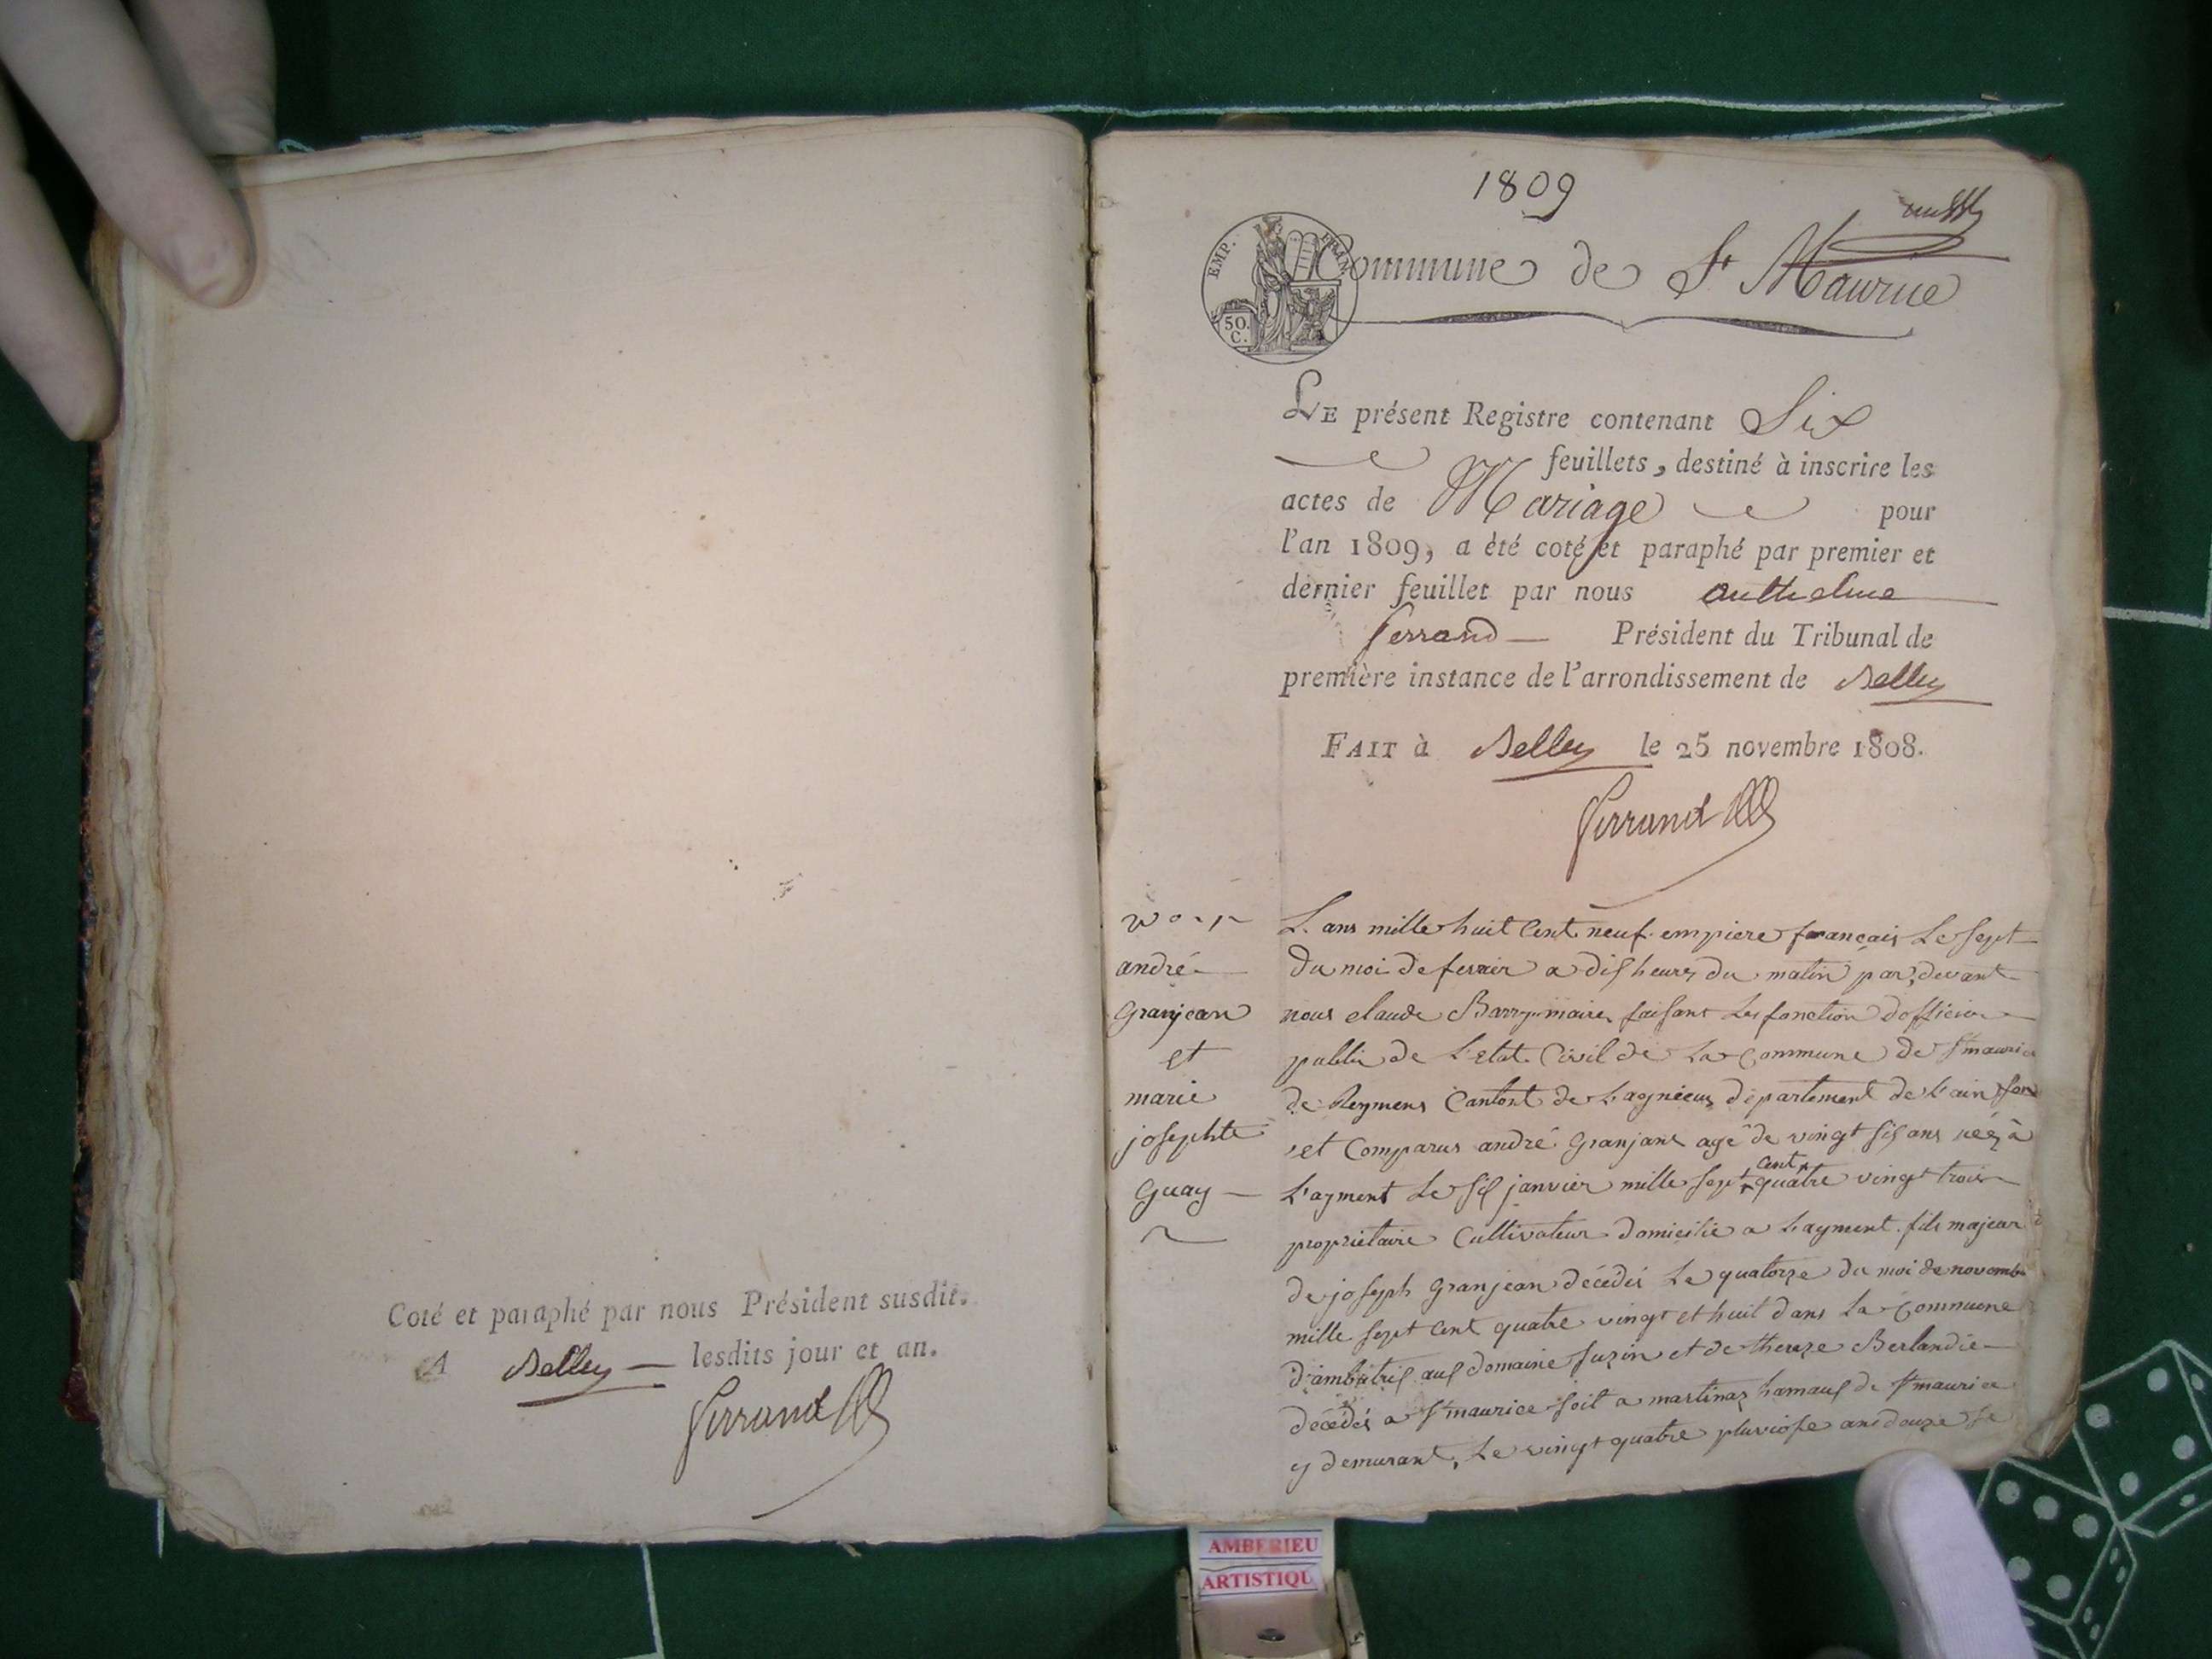 Coté et paraphé par nous Président susdit.
A Belley lesdits jour et an.
Ferrand
1809
EMP. FRAN.
50.
C.
Commune de St Maurice
LE présent Registre contenant Six
feuillets, destiné à inscrire les
actes de Mariage pour
l'an 1809, a été coté et paraphé par premier et
dernier feuillet par nous Anthelme
Ferrand Président du Tribunal de
première instance de l'arrondissement de Belley
FAIT à Belley le 25 novembre 1808.
Ferrand
andré
Granjean
et
marie
josephte
Guay
L'ans mille huit Cent neuf empiere français Le sept
du moi de fevrier a dix heures du matin par devant
nous claude Barry maire faisant Les fonction d'officier
public de L'etat Civil de La Commune de St maurice
de Reymens Cantont de Lagnieux département de L'ain son
et Comparus andré Granjant agé de vingt six ans néz à
L'ayment Le six janvier mille sept cent quatre vingt trois
proprietaire Cultivateur domicilié a Layment fils majeur
de joseph Granjean décédés Le quatorze du moi de novembre
mille sept Cent quatre vingt et huit dans La Commune
d'ambutrix aux domaine suzin et de thereze Berlandié
décédés a St maurice soit a martinaz hamaux de St maurice
y demurant, Le vingt quatre pluviose ans douze
AMBERIEU
ARTISTIQU